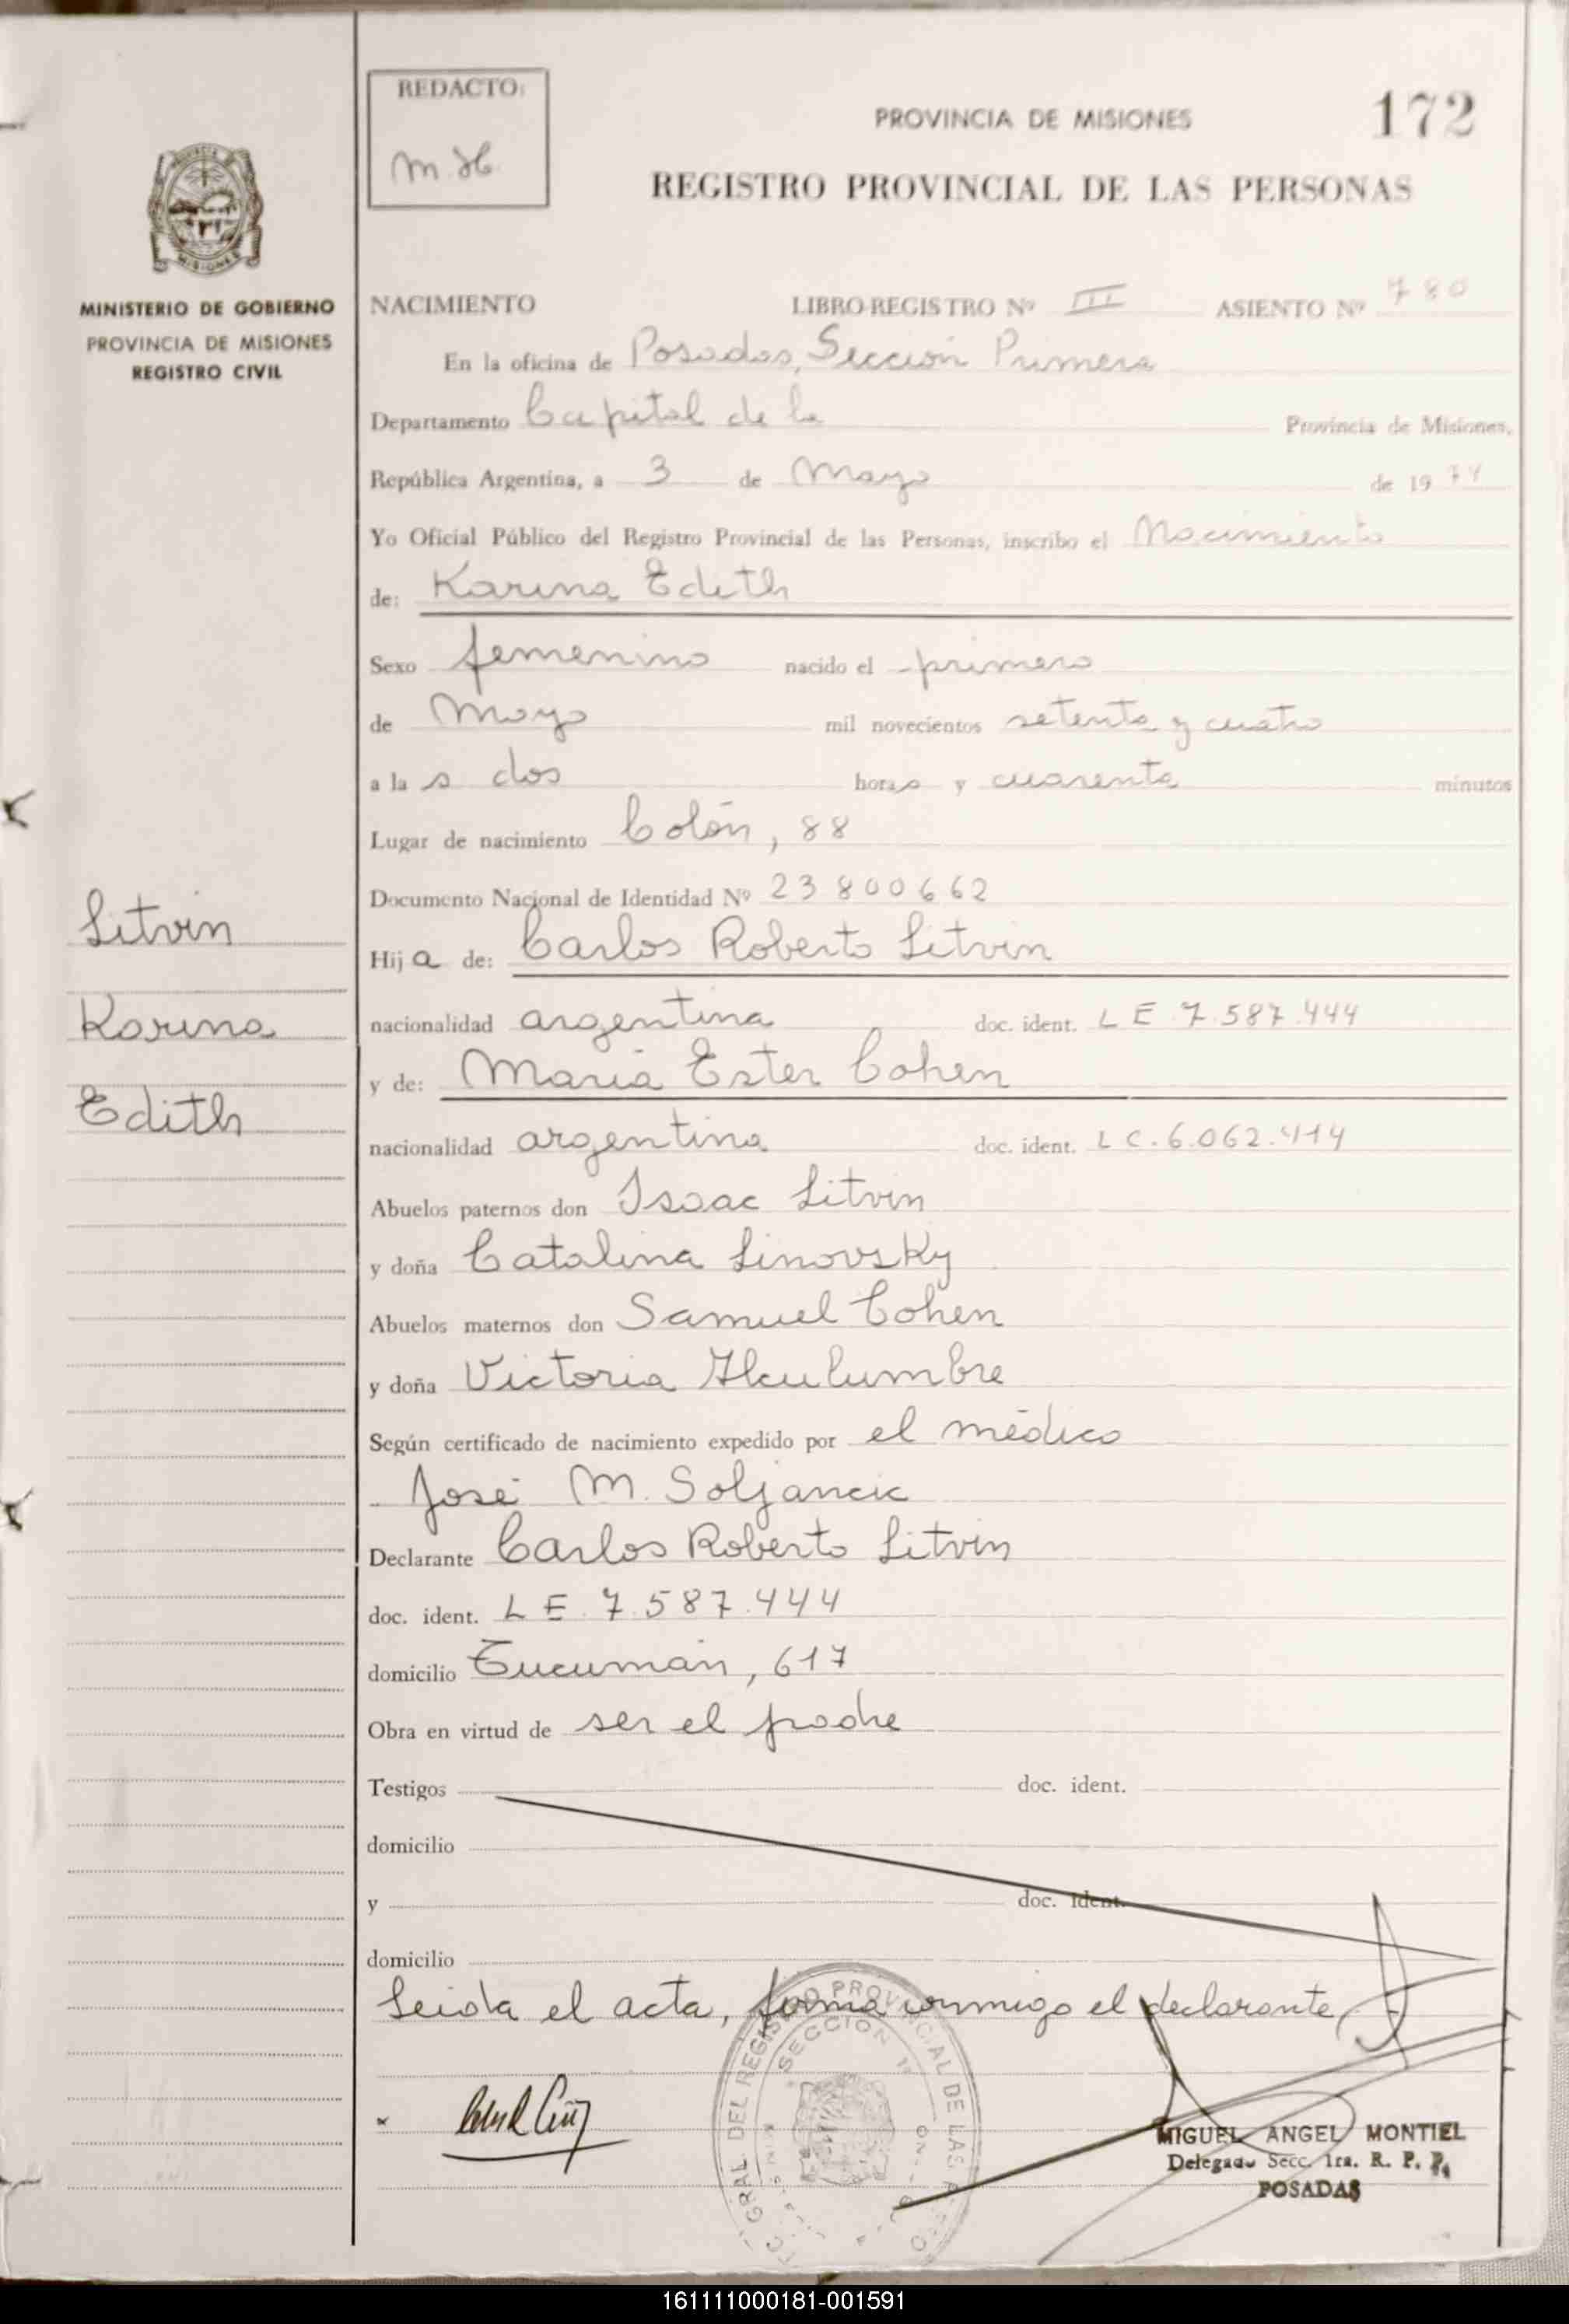 REDACTO:
M. H.
PROVINCIA DE MISIONES
172
REGISTRO PROVINCIAL DE LAS PERSONAS
MINISTERIO DE GOBIERNO
PROVINCIA DE MISIONES
REGISTRO CIVIL
NACIMIENTO LIBRO-REGISTRO Nº III ASIENTO Nº 780
En la oficina de Posadas, Sección Primera
Departamento Capital de la Provincia de Misiones,
República Argentina, a 3 de Mayo de 1974
Yo Oficial Público del Registro Provincial de las Personas, inscribo el Nacimiento
de: Karina Edith
Sexo femenino nacido el primero
de Mayo mil novecientos setenta y cuatro
a la s dos horas y cuarenta minutos
Lugar de nacimiento Colón, 88
Documento Nacional de Identidad Nº 23800662
Litvin
Karina
Edith
Hija de: Carlos Roberto Litvin
nacionalidad argentina doc. ident. LE 7.587.444
y de: Maria Ester Cohen
nacionalidad argentina doc. ident. LC.6.062.414
Abuelos paternos don Isaac Litvin
y doña Catalina Linovsky
Abuelos maternos don Samuel Cohen
y doña Victoria
Según certificado de nacimiento expedido por el médico
José M. Soljancic
Declarante Carlos Roberto Litvin
doc. ident. LE 7.587.444
domicilio Tucumán, 617
Obra en virtud de ser el padre
Testigos doc. ident.
domicilio
y doc. ident.
domicilio
Leida el acta, firma conmigo el declarante
GRAL. DEL REGISTRO PROVINCIAL DE LAS
SECCION 1ª
MIGUEL ANGEL MONTIEL
Delegado Secc. 1ra. R. P. P.
POSADAS
161111000181-001591